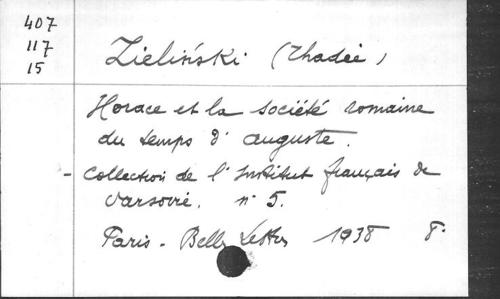 407
117
15
Zieliński (Thadée)
Horace et la société romaine
du temps d'auguste.
- Collection de l'Institut français de
Varsovie. n° 5.
Paris - Belles Lettres 1938 8°